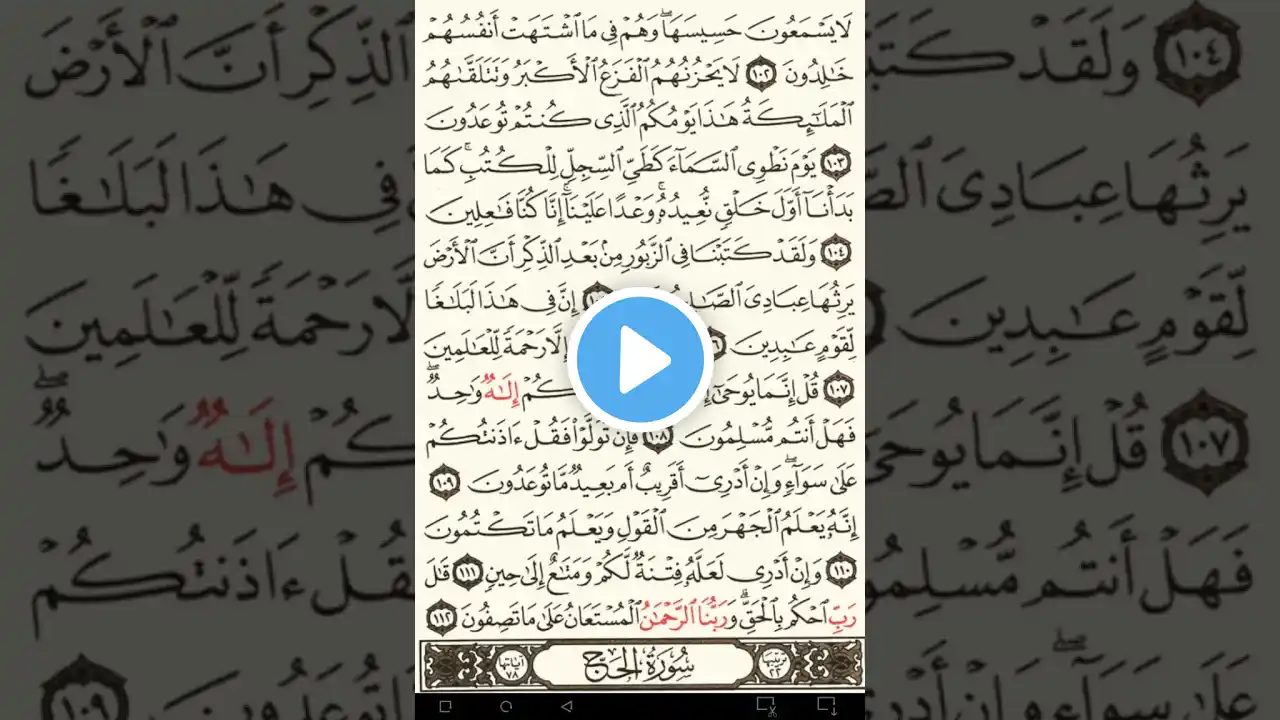 لَا يَسْمَعُونَ حَسِيسَهَا ۖ وَهُمْ فِي مَا اشْتَهَتْ أَنفُسُهُمْ
خَٰلِدُونَ ١٠٢ لَا يَحْزُنُهُمُ الْفَزَعُ الْأَكْبَرُ وَتَتَلَقَّىٰهُمُ
الْمَلَٰٓئِكَةُ هَٰذَا يَوْمُكُمُ الَّذِي كُنتُمْ تُوعَدُونَ
١٠٣ يَوْمَ نَطْوِي السَّمَآءَ كَطَيِّ السِّجِلِّ لِلْكُتُبِ ۚ كَمَا
بَدَأْنَآ أَوَّلَ خَلْقٍ نُّعِيدُهُۥ ۚ وَعْدًا عَلَيْنَآ ۚ إِنَّا كُنَّا فَٰعِلِينَ
١٠٤ وَلَقَدْ كَتَبْنَا فِي الزَّبُورِ مِنۢ بَعْدِ الذِّكْرِ أَنَّ الْأَرْضَ
يَرِثُهَا عِبَادِيَ إِنَّ فِي هَٰذَا لَبَلَٰغًا
لِّقَوْمٍ عَٰبِدِينَ إِلَّا رَحْمَةً لِّلْعَٰلَمِينَ
١٠٧ قُلْ إِنَّمَا يُوحَىٰٓ إِلَٰهٌ وَٰحِدٌ ۖ
فَهَلْ أَنتُم مُّسْلِمُونَ ١٠٨ فَإِن تَوَلَّوْا فَقُلْ ءَاذَنتُكُمْ
عَلَىٰ سَوَآءٍ ۖ وَإِنْ أَدْرِيٓ أَقَرِيبٌ أَم بَعِيدٌ مَّا تُوعَدُونَ ١٠٩
إِنَّهُۥ يَعْلَمُ الْجَهْرَ مِنَ الْقَوْلِ وَيَعْلَمُ مَا تَكْتُمُونَ
١١٠ وَإِنْ أَدْرِي لَعَلَّهُۥ فِتْنَةٌ لَّكُمْ وَمَتَٰعٌ إِلَىٰ حِينٍ ١١١ قَٰلَ
رَبِّ احْكُم بِالْحَقِّ ۗ وَرَبُّنَا الرَّحْمَٰنُ الْمُسْتَعَانُ عَلَىٰ مَا تَصِفُونَ ١١٢
ترتيبها ٢٢ سُورَةُ الْحَجِّ آياتها ٧٨